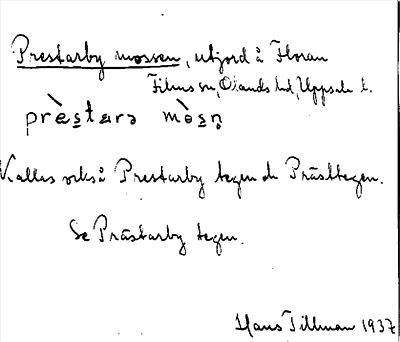 Prestarby mossen, utjord å Floran
Films sn, Olands hd, Uppsala l.
prèstarə mòsn̥
Kallas också Prestarby tegen de Prästtegen.
Se Prästarby tegen.
Hans Tillman 1937